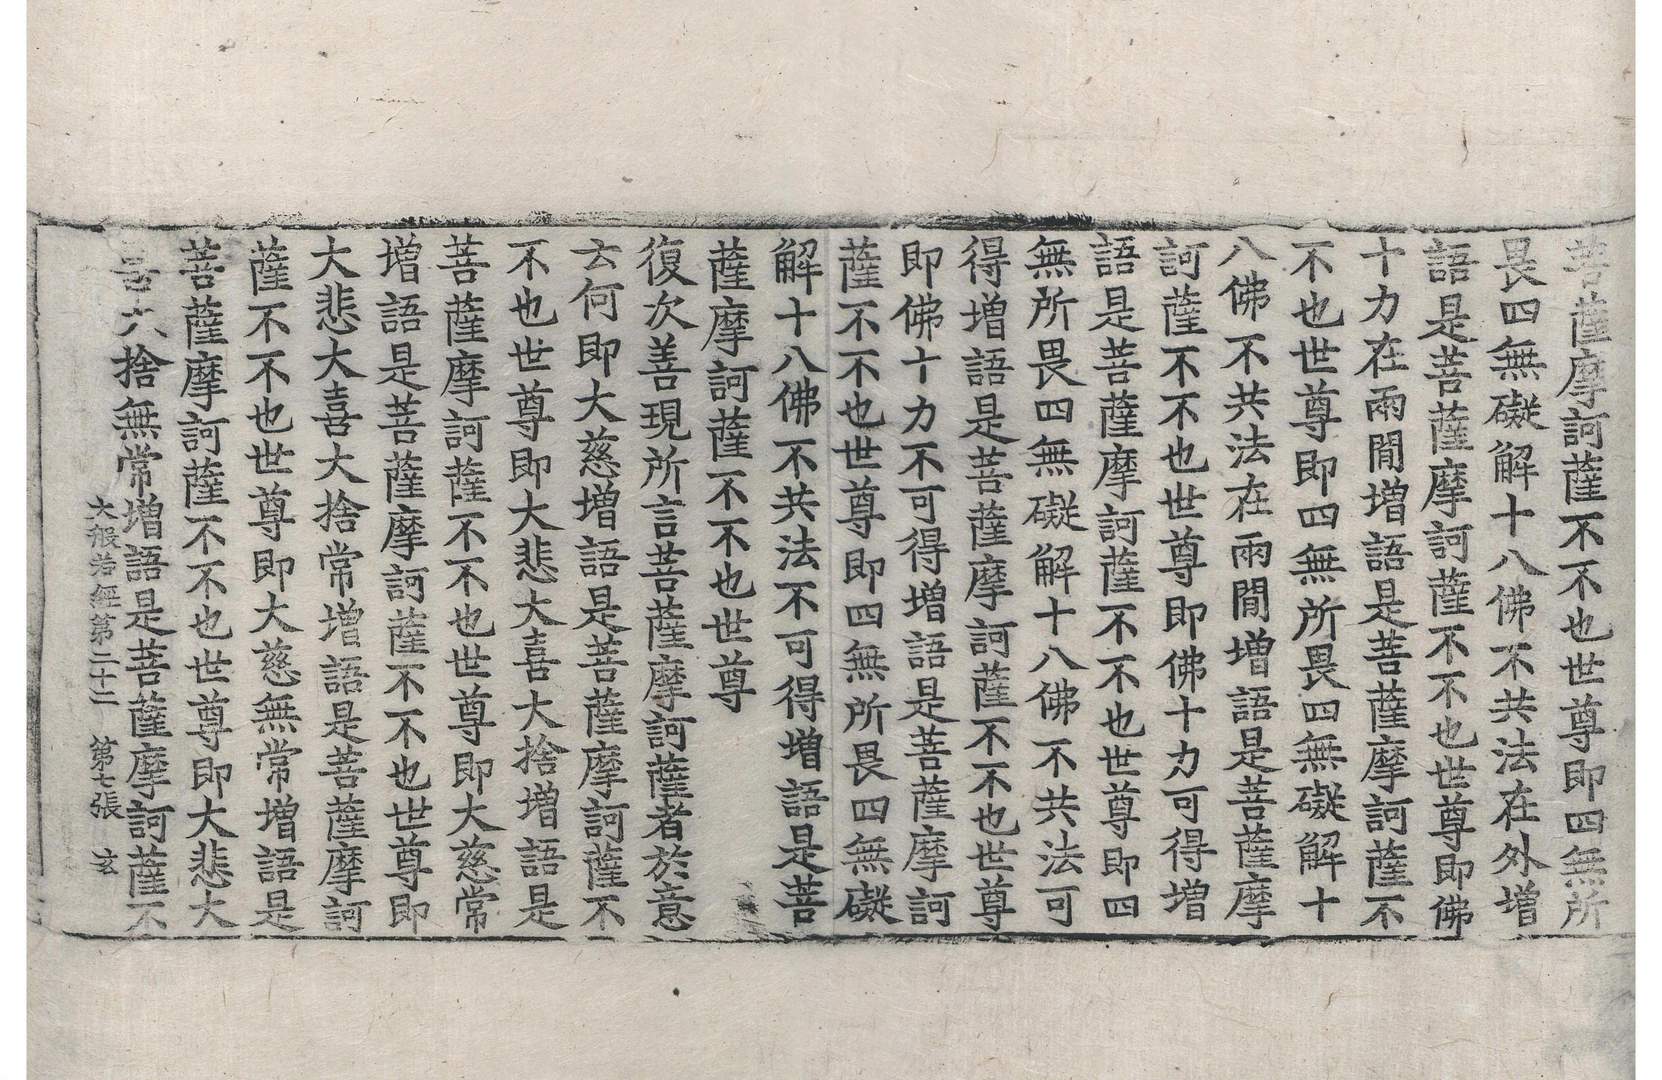 菩薩摩訶薩不不也世尊即四無所
畏四無礙解十八佛不共法在外增
語是菩薩摩訶薩不不也世尊即佛
十力在兩閒增語是菩薩摩訶薩不
不也世尊即四無所畏四無礙解十
八佛不共法在兩閒增語是菩薩摩
訶薩不不也世尊即佛十力可得增
語是菩薩摩訶薩不不也世尊即四
無所畏四無礙解十八佛不共法可
得增語是菩薩摩訶薩不不也世尊
即佛十力不可得增語是菩薩摩訶
薩不不也世尊即四無所畏四無礙
解十八佛不共法不可得增語是菩
薩摩訶薩不不也世尊
復次善現所言菩薩摩訶薩者於意
云何即大慈增語是菩薩摩訶薩不
不也世尊即大悲大喜大捨增語是
菩薩摩訶薩不不也世尊即大慈常
增語是菩薩摩訶薩不不也世尊即
大悲大喜大捨常增語是菩薩摩訶
薩不不也世尊即大慈無常增語是
菩薩摩訶薩不不也世尊即大悲大
喜大捨無常增語是菩薩摩訶薩不
大般若經第二十二 第七張 玄